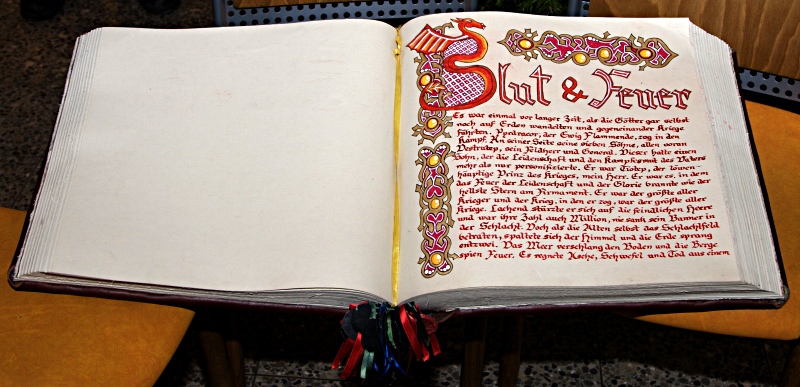 Blut & Feuer
Es war einmal vor langer Zeit, als die Götter gar selbst
noch auf Erden wandelten und gegeneinander Kriege
führten. Pyrdracor, der Ewig Flammende, zog in den
Kampf. An seiner Seite seine sieben Söhne, allen voran
Destrutep, sein Feldherr und General. Dieser hatte einen
Sohn, der die Leidenschaft und den Kampfesmut des Vaters
mehr als nur personifizierte. Er war Tiotep, der löwen-
häuptige Prinz des Krieges, mein Herr. Er war es, in dem
das Feuer der Leidenschaft und der Glorie brannte wie der
hellste Stern am Firmament. Er war der größte aller
Krieger und der Krieg, in den er zog, war der größte aller
Kriege. Lachend stürzte er sich auf die feindlichen Heere
und war ihre Zahl auch Million, nie sank sein Banner in
der Schlacht. Doch als die Alten selbst das Schlachtfeld
betraten, spaltete sich der Himmel und die Erde sprang
entzwei. Das Meer verschlang den Boden und die Berge
spien Feuer. Es regnete Asche, Schwefel und Tod aus einem